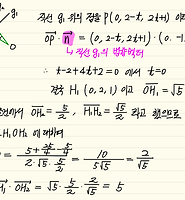 직선 g, 위의 점을 P(0, 2-t, 2t+1) 이라
OP · n = (0, 2-t, 2t+1) · (0, -1,
↳ 직선 g,의 방향벡터
∴ t-2+4t+2=0 에서 t=0
각각 H₁(0,2,1) 이고 OH₁ = √5
에서 OH₂ = 5/2, H₁H₂ = √5/2 라고 했으므로
H₁OH₂ 에 대하여
= 10/(5√5) = 2/√5
H₁ · OH₂ = √5 · 5/2 · 2/√5 = 5